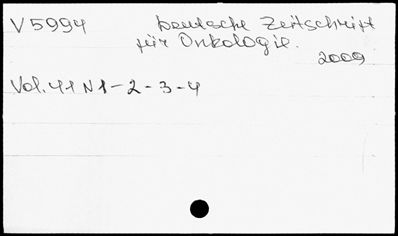 V5994 Deutsche Zeitschrift
für Onkologie.
2009
Vol. 41 N 1-2-3-4